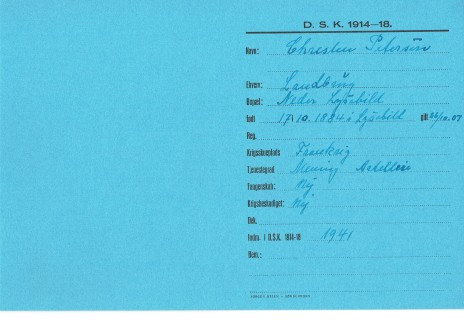 D. S. K. 1914—18.
Navn: Chresten Petersen
Erhverv: Landbrug
Bopæl: Neder
født 17/10. 1884 i gift
Reg.
Krigsskueplads Frankrig
Tjenestegrad Menig
Fangenskab: Nej
Krigsbeskadiget: Nej
Dek.
Indm. i D.S.K. 1914-18 1941
Bem.: